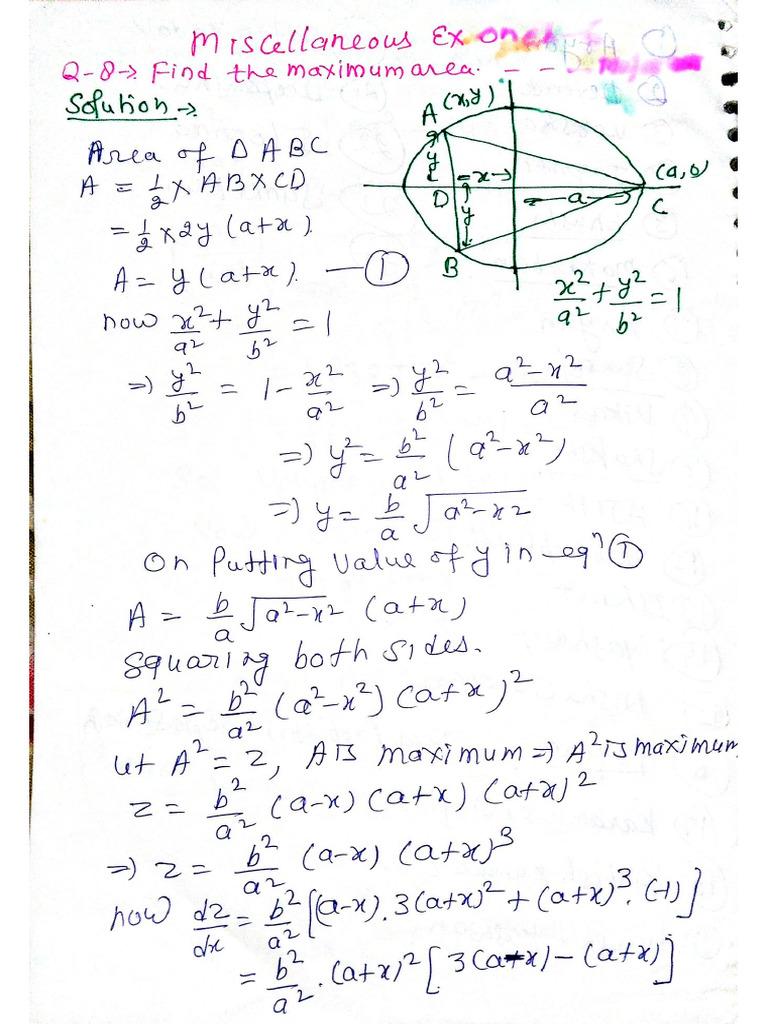 Miscellaneous Ex one
Q-8→ Find the maximum area. - - -
Solution→
Area of Δ ABC
A = 1/2 × AB × CD
= 1/2 × 2y (a+x).
A = y (a+x). — ①
A (x,y)
y
x
D
y
a
(a,0)
C
B
x²/a² + y²/b² = 1
now x²/a² + y²/b² = 1
⇒ y²/b² = 1 - x²/a² ⇒ y²/b² = (a²-x²)/a²
⇒ y² = b²/a² (a²-x²)
⇒ y = b/a √(a²-x²)
On Putting value of y in eqⁿ ①
A = b/a √(a²-x²) (a+x)
Squaring both sides.
A² = b²/a² (a²-x²) (a+x)²
let A² = z, A is maximum ⇒ A² is maximum
z = b²/a² (a-x) (a+x) (a+x)²
⇒ z = b²/a² (a-x) (a+x)³
now dz/dx = b²/a² [(a-x). 3(a+x)² + (a+x)³. (-1)]
= b²/a² . (a+x)² [3(a-x) - (a+x)]